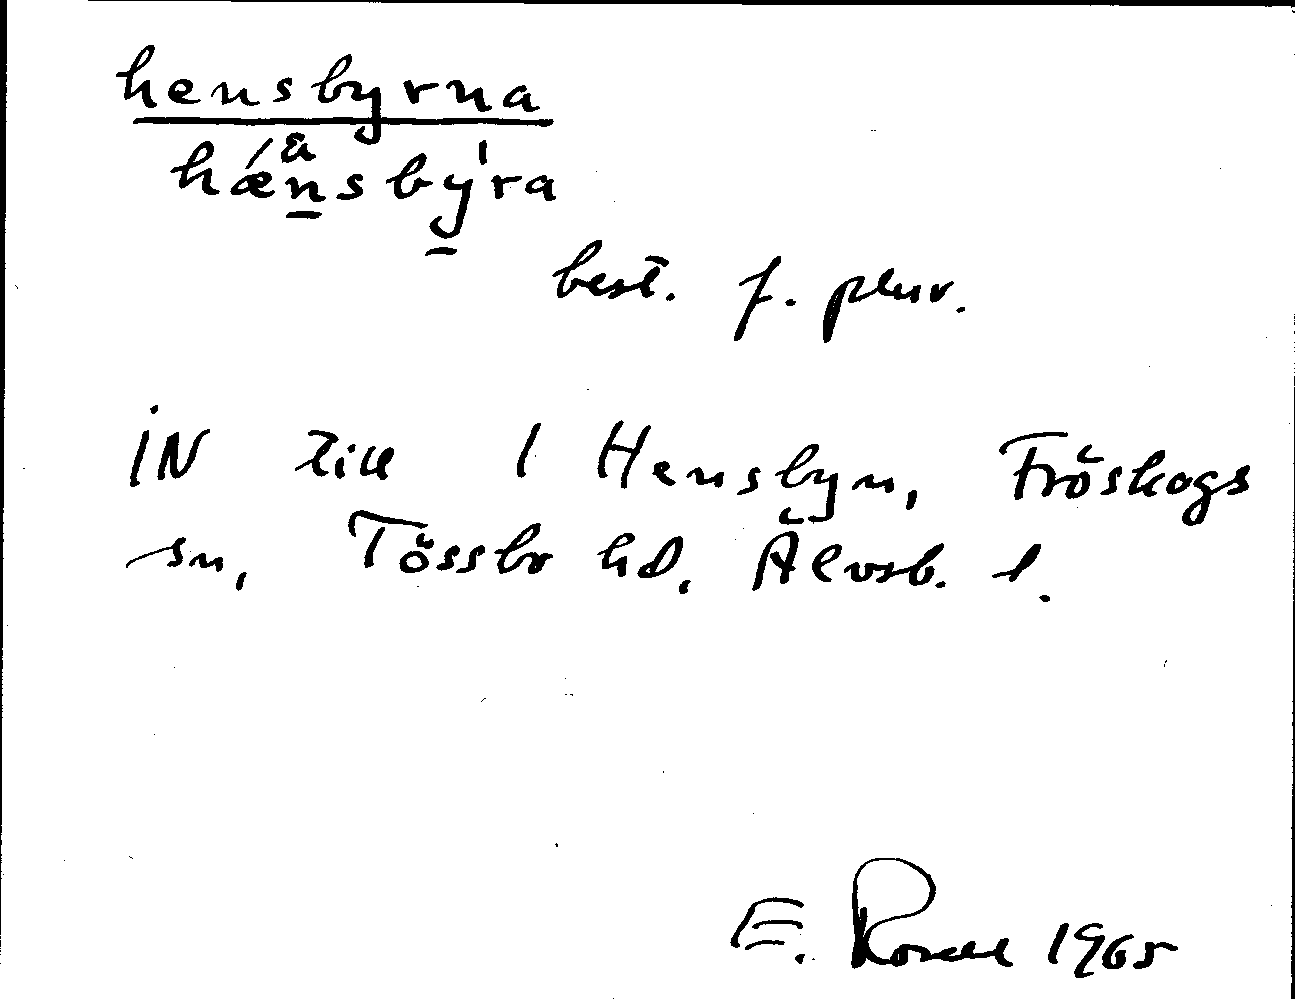 hensbyrna
hǽnsbýra
best. f. plur.
IN till 1 Hensbyn, Fröskogs
sn, Tössbo hd. Älvsb. l.
E. 1965